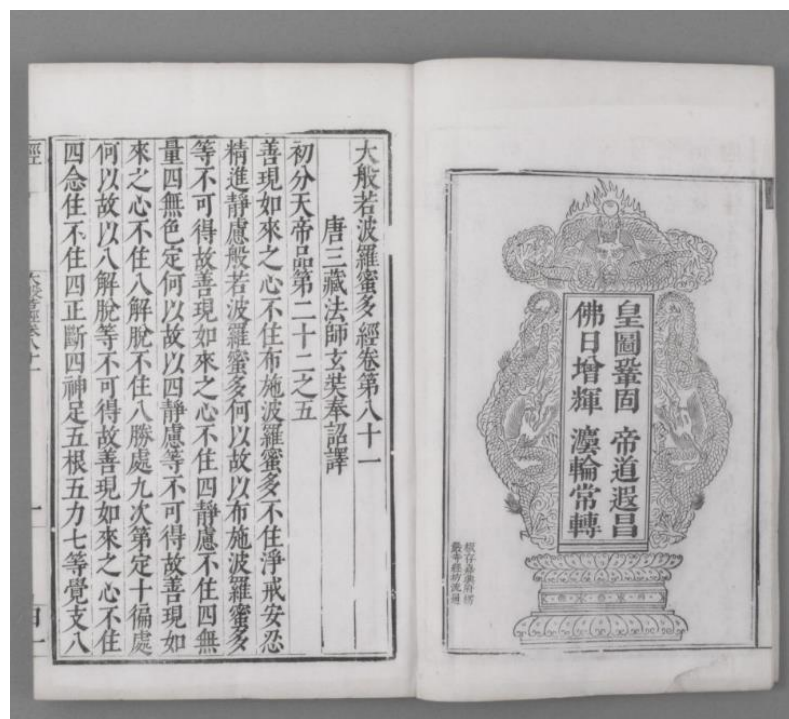 皇圖鞏固 帝道遐昌
佛日增輝 灋輪常轉
板存嘉興府楞
嚴寺經坊流通
大般若波羅蜜多經卷第八十一
唐三藏法師玄奘奉詔譯
初分天帝品第二十二之五
善現如來之心不住布施波羅蜜多不住淨戒安忍
精進靜慮般若波羅蜜多何以故以布施波羅蜜多
等不可得故善現如來之心不住四靜慮不住四無
量四無色定何以故以四靜慮等不可得故善現如
來之心不住八解脫不住八勝處九次第定十徧處
何以故以八解脫等不可得故善現如來之心不住
四念住不住四正斷四神足五根五力七等覺支八